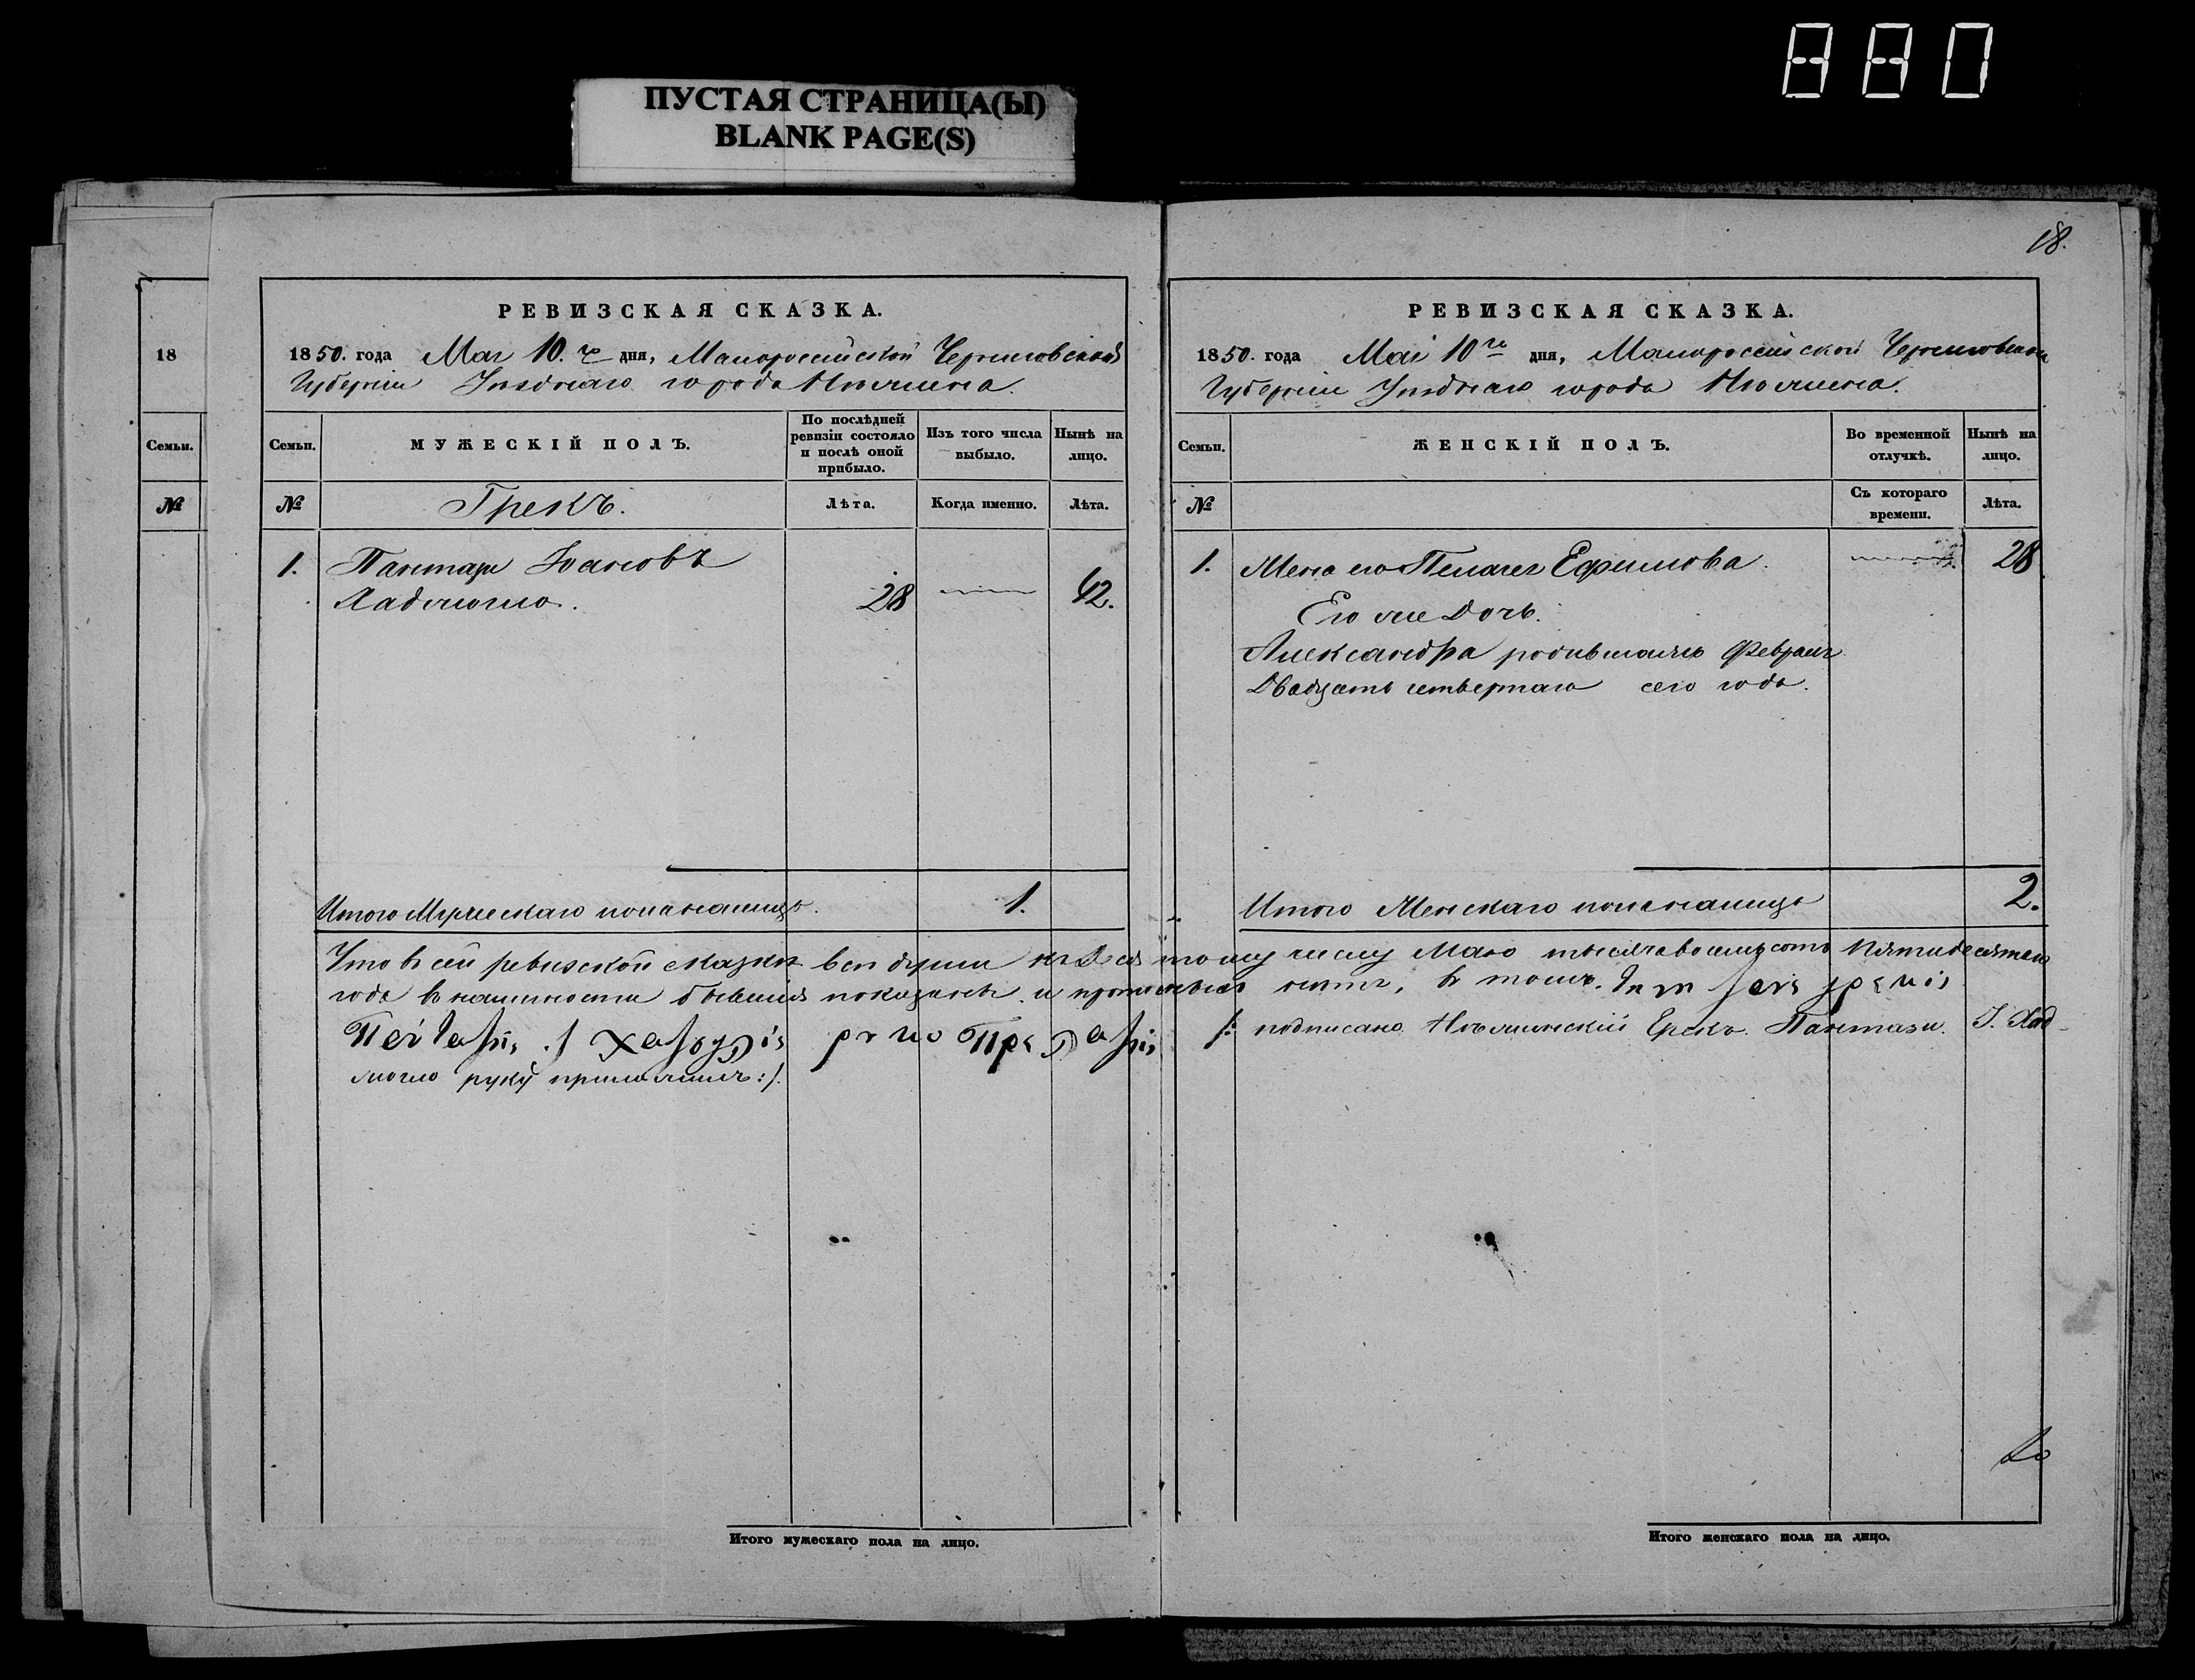 880
ПУСТАЯ СТРАНИЦА(Ы)
BLANK PAGE(S)
18
Семьи.
№
РЕВИЗСКАЯ СКАЗКА.
1850. года Мая 10.го дня, Малороссійской Черниговской
Губерніи Уѣзднаго города Нѣжина.
Семьи.
МУЖЕСКІЙ ПОЛЪ.
По послѣдней ревизіи состояло и послѣ оной прибыло.
Изъ того числа выбыло.
Нынѣ на лицо.
№
Грекъ.
Лѣта.
Когда именно.
Лѣта.
1. Пантази Ивановъ
Хаджогло. 28 42.
Итого Мужескаго пола налицо. 1.
18.
РЕВИЗСКАЯ СКАЗКА.
1850. года Маія 10го дня, Малороссійской Черниговской
Губерніи Уѣзднаго города Нѣжина.
Семьи.
ЖЕНСКІЙ ПОЛЪ.
Во временной отлучкѣ.
Нынѣ на лицо.
№
Съ котораго времени.
Лѣта.
1. Жена его Пелагея Ефимова. 28
Его же Дочь.
Александра родившаяся Февраля
Двадцать четвертаго сего года.
Итого Женскаго пола налицо 2.
Что в сей ревизской сказки всѣ души къ Десятому числу Маю тысяча восемьсотъ Пятидесятаго
года в наличности бывшія показаны и прописныхъ нѣтъ, в томъ.
/: подписано Нѣжинскій Грекъ Пантази. І. Хад-
жогло руку приложилъ :/.
Итого мужескаго пола на лицо.
Итого женскаго пола на лицо.